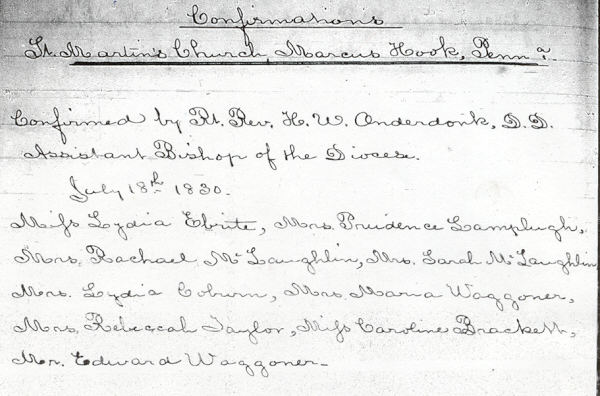 Confirmations
St. Martin's Church, Marcus Hook, Penn a.
Confirmed by Rt. Rev. H. W. Onderdonk, D.D.
Assistant Bishop of the Diocese.
July 18th 1830.
Miss Lydia Ebrite, Mrs. Prudence Lamplugh,
Mrs. Rachael McLaughlin, Mrs. Sarah McLaughlin
Mrs. Lydia Coburn, Mrs. Maria Waggoner,
Mrs. Rebeccah Taylor, Miss Caroline Brackett,
Mr. Edward Waggoner-